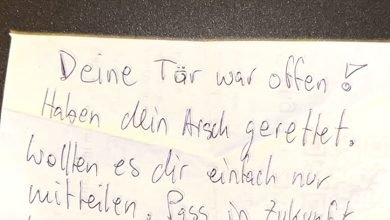 Deine Tür war offen!
Haben dein Arsch gerettet.
Wollten es dir einfach nur
mitteilen. Pass in Zukunft